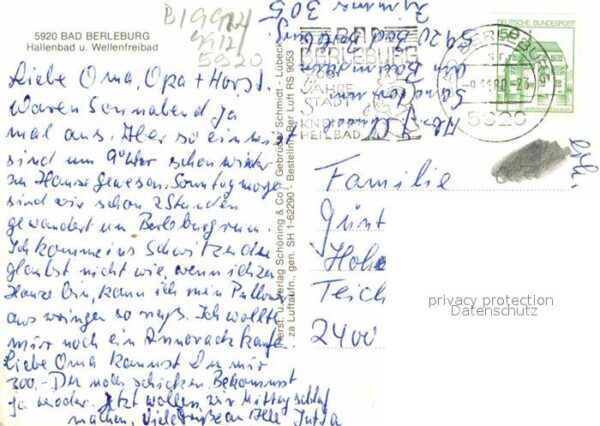 5920 BAD BERLEBURG
Hallenbad u. Wellenfreibad
5920
Liebe Oma, Opa + Horst.
Waren Sonnabend ja
mal aus. Aber so
sind um 9 Uhr schon wieder
zu Hause gewesen. Sonntagmorgen
sind wir schon 2 Stunden
gewandert um Berleburg rum.
Ich komme ins Schwitzen du
glaubst nicht wie, wenn ich zu
Hause bin, kann ich mein Pullover
auswringen so naß. Ich wollte
mir noch ein Annorack kaufen
Liebe Oma kannst Du mir
300,- DM noch schicken. Bekommst
ja wieder. Jetzt wollen wir Mittagschlaf
machen. Viele Grüße an Alle Jutta
Herst. u. Verlag Schöning & Co · Gebrüder Schmidt - Lübeck
za Luftaufn., gen. SH 1-62290 - Bestellnr. Ber Luft RS 9053
Abs.
Sanatorium
am
5920 Bad Berleburg
Zimmer 305
BAD
BERLEBURG
JAHRE
STADT
HEILBAD
5920
DEUTSCHE BUNDESPOST
Familie
Günt
Hohe
Teich
2400
privacy protection
Datenschutz